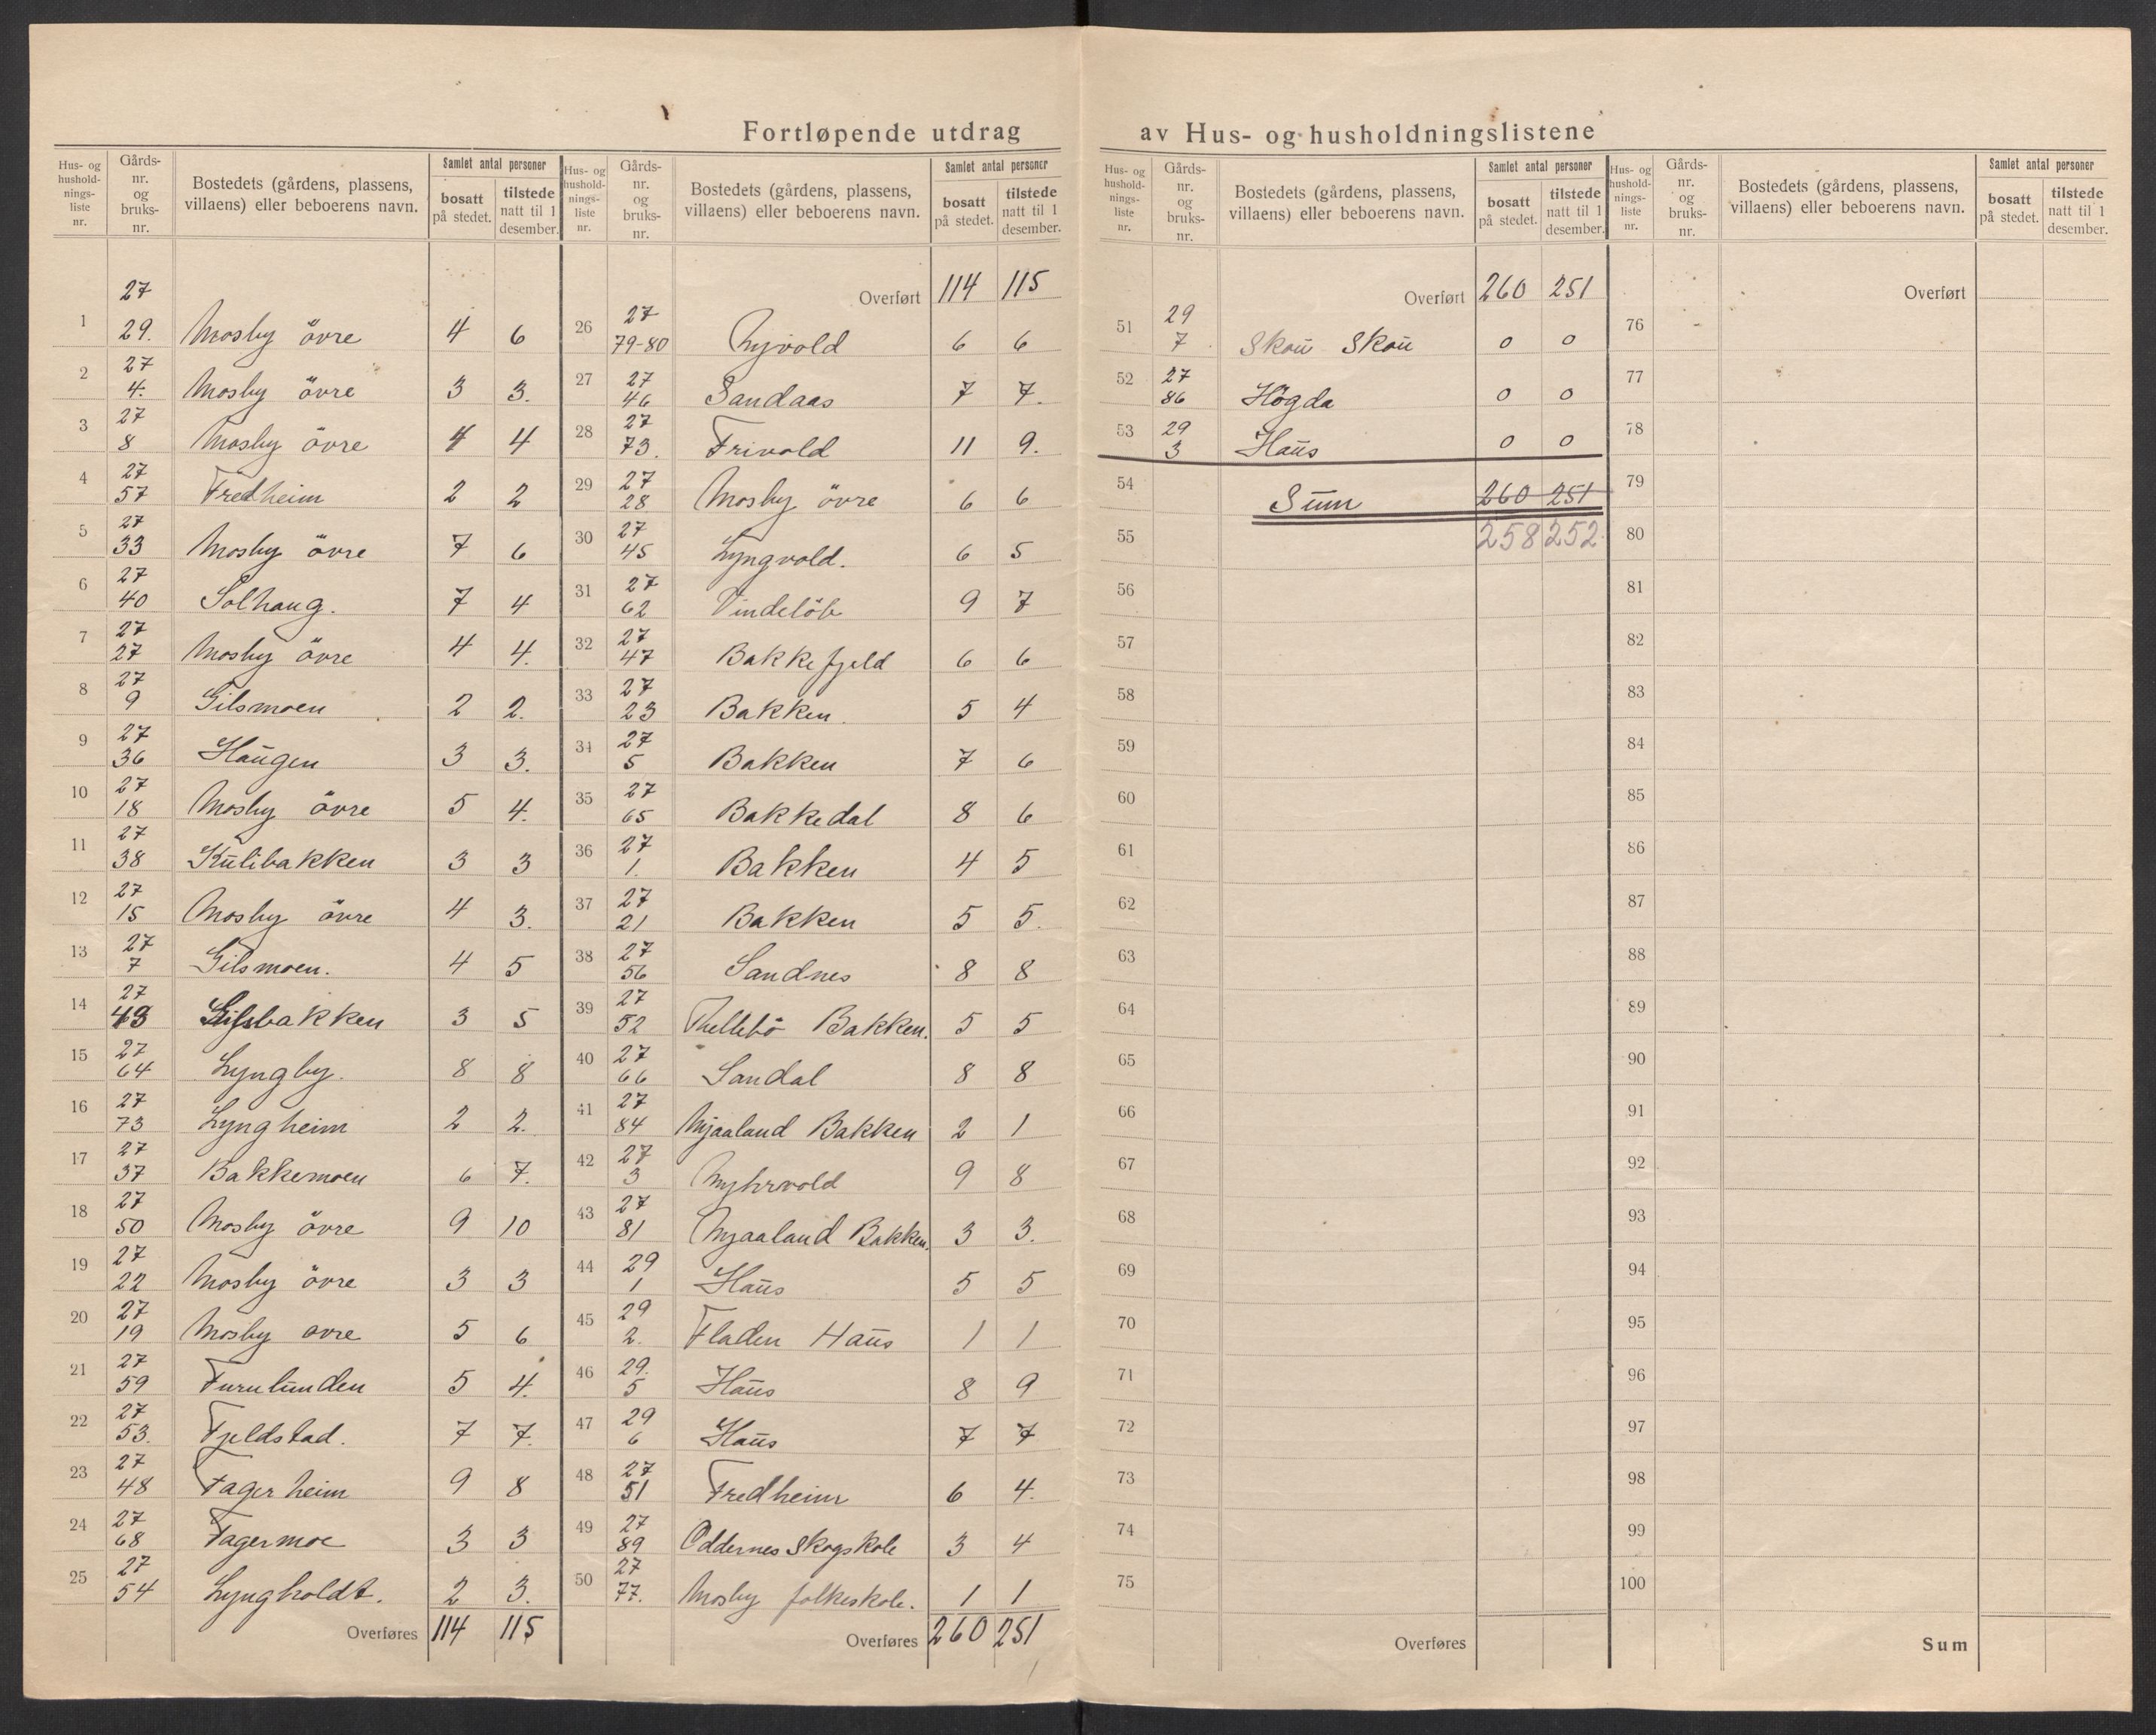 Fortløpende utdrag av Hus- og husholdningslistene
Hus- og husholdnings-liste nr. | Gårds-nr. og bruks-nr. | Bostedets (gårdens, plassens, villaens) eller beboerens navn. | Samlet antal personer: bosatt på stedet. | tilstede natt til 1 desember.
1 27 29. Mosby övre 4 6
2 27 4. Mosby övre 3 3.
3 27 8 Mosby övre 4 4
4 27 57 Fredheim 2 2
5 27 33 Mosby övre 7 6
6 27 40 Solhaug. 7 4
7 27 27 Mosby övre 4 4.
8 27 9 Gilsmoen 2 2.
9 27 36 Haugen 3 3.
10 27 18 Mosby övre 5 4.
11 27 38 Kulibakken 3 3
12 27 15 Mosby övre 4 3.
13 27 7 Gilsmoen. 4 5
14 27 43 Gilsbakken 3 5
15 27 64 Lyngby. 8 8
16 27 73 Lyngheim 2 2.
17 27 37 Bakkemoen 6 7.
18 27 50 Mosby övre 9 10
19 27 22 Mosby övre 3 3
20 27 19 Mosby ovre 5 6
21 27 59 Furulunden 5 4.
22 27 53. Fjeldstad. 7 7.
23 27 48 Fagerheim 9 8
24 27 68 Fagermoe 3 3
25 27 54 Lyngholdt. 2 3.
Overføres 114 115
Hus- og husholdnings-liste nr. | Gårds-nr. og bruks-nr. | Bostedets (gårdens, plassens, villaens) eller beboerens navn. | Samlet antal personer: bosatt på stedet. | tilstede natt til 1 desember.
Overført 114 115
26 27 79-80 Nyvold 6 6
27 27 46 Sandaas 7 7.
28 27 73. Frivold 11 9.
29 27 28 Mosby övre 6 6
30 27 45 Lyngvold. 6 5
31 27 62 Vindelöb 9 7
32 27 47 Bakkefjeld 6 6
33 27 23 Bakken. 5 4
34 27 5 Bakken 7 6
35 27 65 Bakkedal 8 6
36 27 1. Bakken 4 5
37 27 21 Bakken 5 5.
38 27 56 Sandnes 8 8
39 27 52 Bakken. 5 5
40 27 66 Sandal 8 8
41 27 84 Mjaaland Bakken 2 1
42 27 3 Myhrvold 9 8
43 27 81 Mjaaland Bakken. 3 3.
44 29 1 Haus 5 5
45 29 2. Fladen Haus 1 1
46 29. 5 Haus 8 9
47 29 6 Haus 7 7
48 27 51 Fredheim 6 4.
49 27 89 Oddernes Skogskole 3 4
50 27 77. Mosby folkeskole. 1 1
Overføres 260 251
Hus- og husholdnings-liste nr. | Gårds-nr. og bruks-nr. | Bostedets (gårdens, plassens, villaens) eller beboerens navn. | Samlet antal personer: bosatt på stedet. | tilstede natt til 1 desember.
Overført 260 251
51 29 7 Skau Skau 0 0
52 27 86 Högda 0 0
53 29 3 Haus 0 0
54 Sum 260 251
55 258 252.
56
57
58
59
60
61
62
63
64
65
66
67
68
69
70
71
72
73
74
75
Overføres
Hus- og husholdnings-liste nr. | Gårds-nr. og bruks-nr. | Bostedets (gårdens, plassens, villaens) eller beboerens navn. | Samlet antal personer: bosatt på stedet. | tilstede natt til 1 desember.
Overført
76
77
78
79
80
81
82
83
84
85
86
87
88
89
90
91
92
93
94
95
96
97
98
99
100
Sum